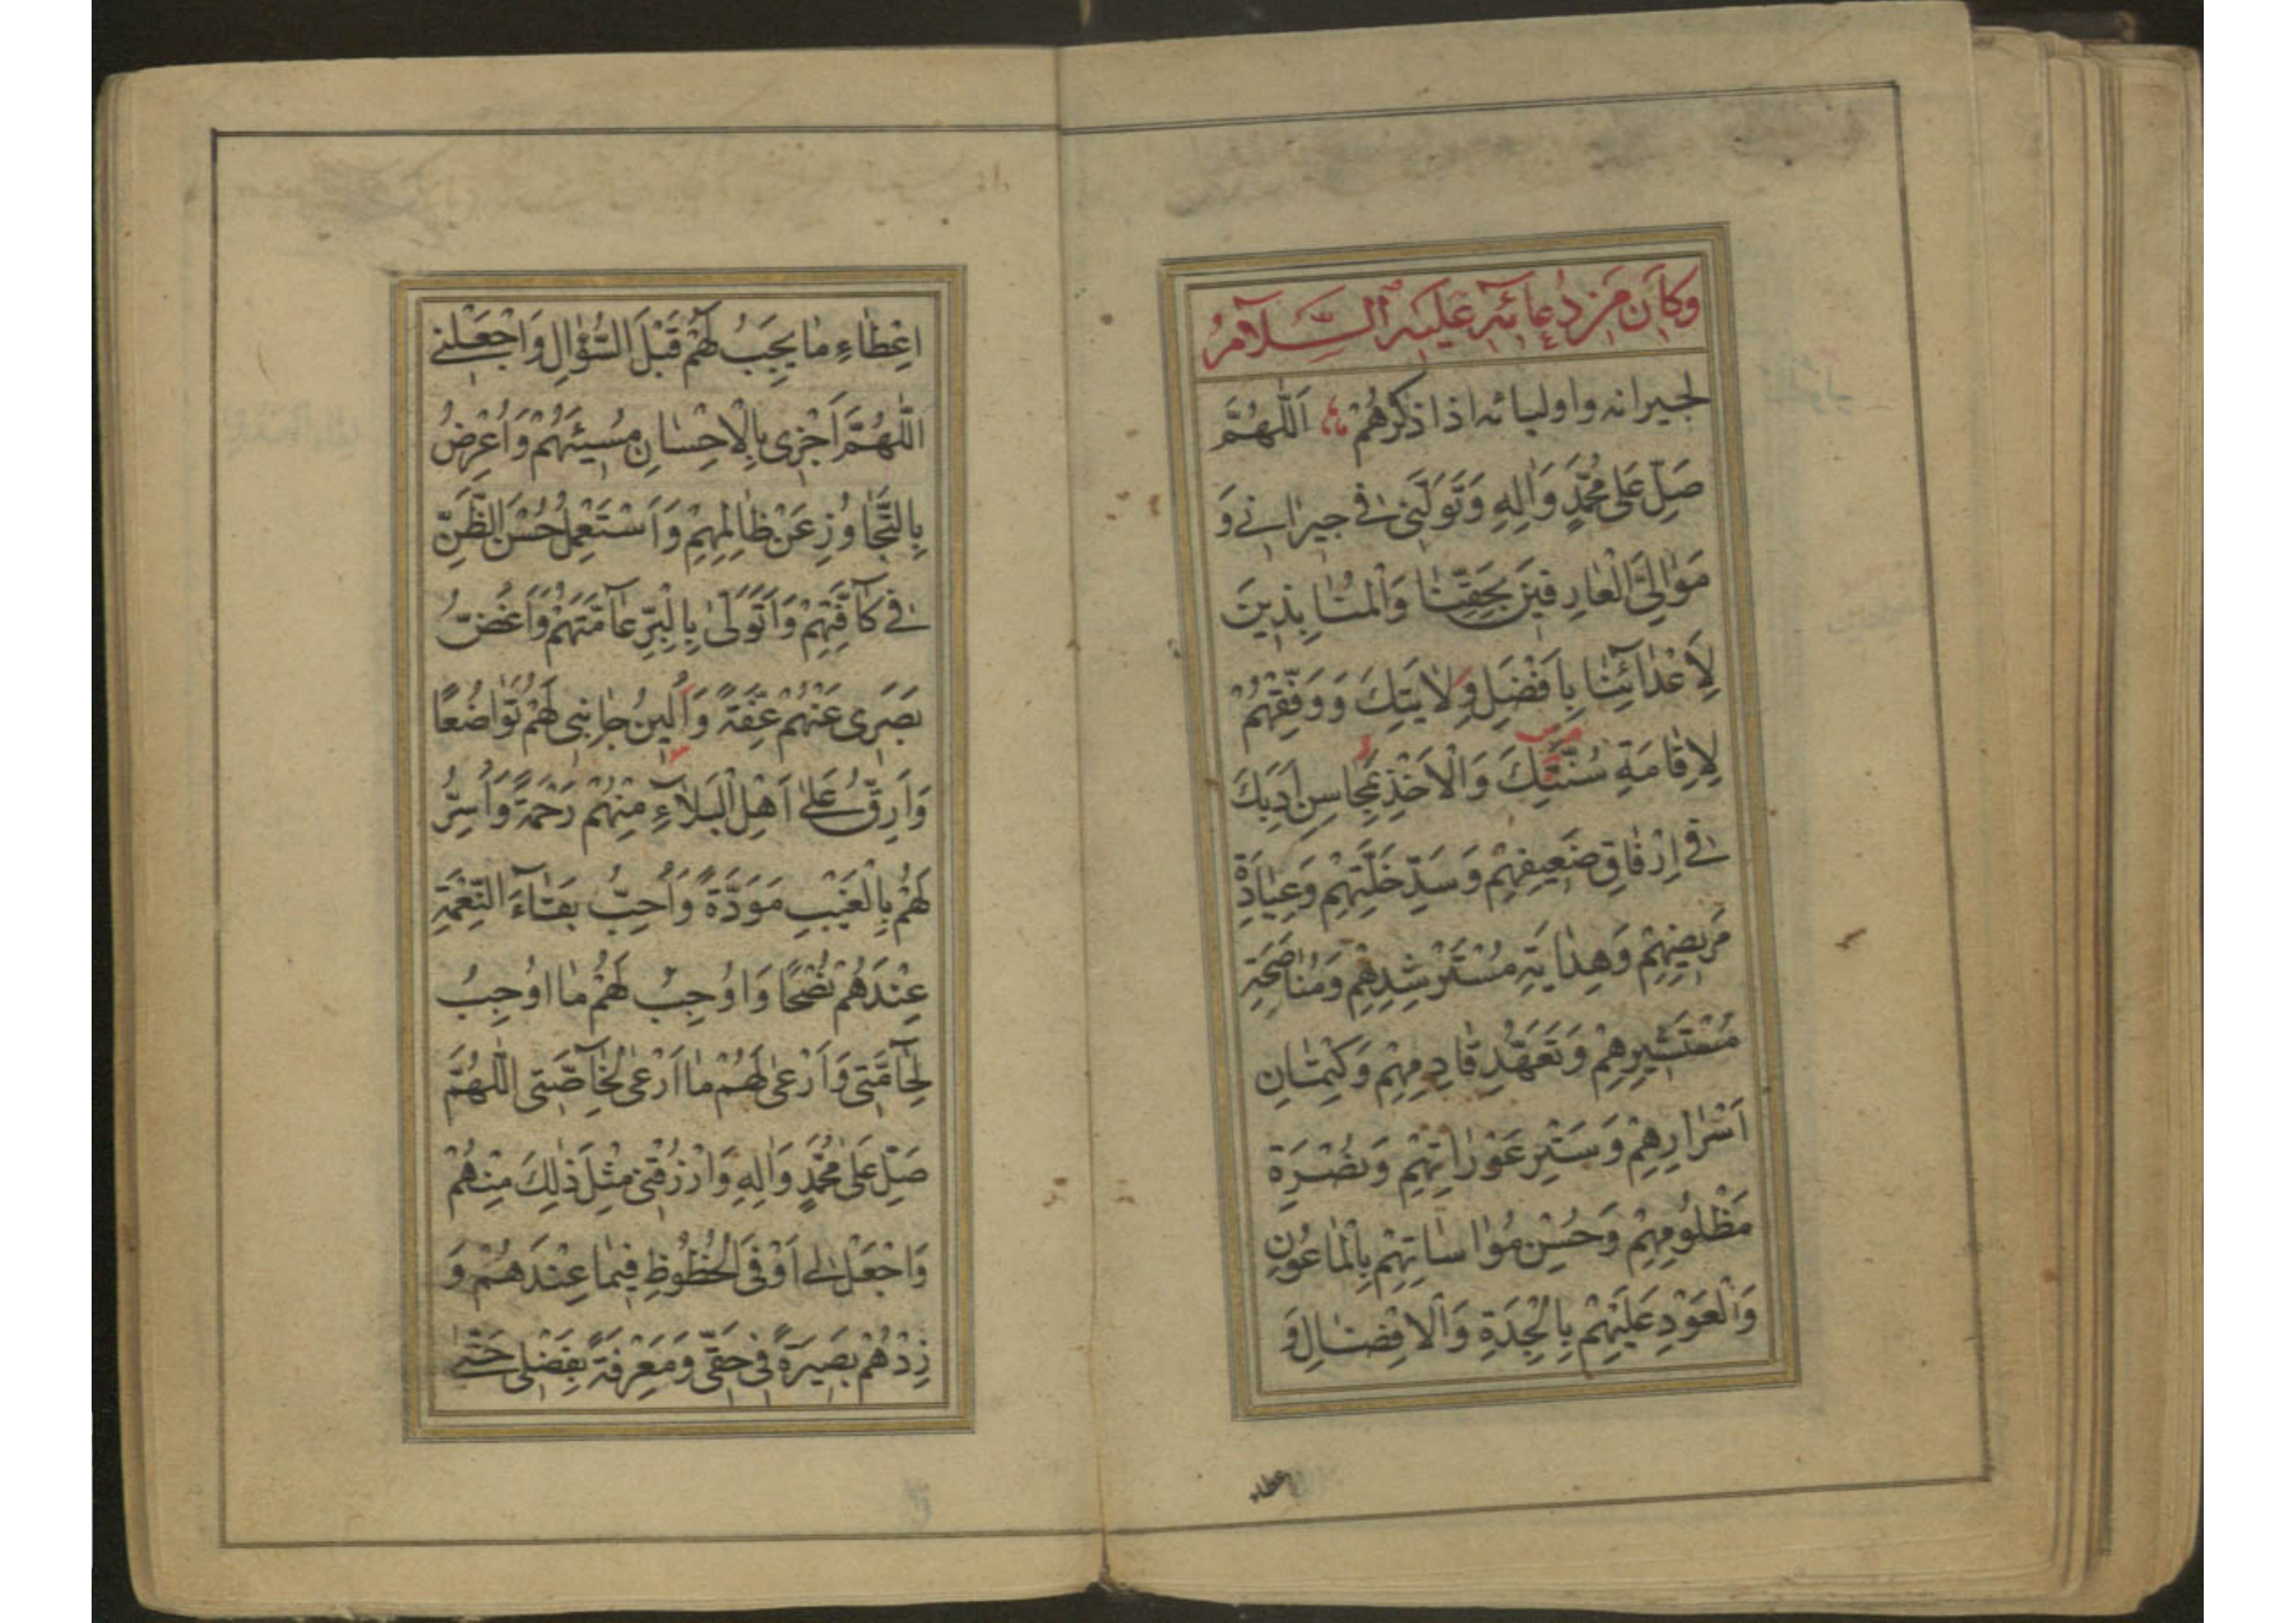 وَكَانَ مِنْ دُعَائِهِ عَلَيْهِ السَّلَامُ
لجيرانه واوليائه اذا ذكرهُمْ اَللّٰهُمَّ
صَلِّ عَلٰى مُحَمَّدٍ وَاٰلِهِ وَتَوَلَّنِى فى جيرٰانى وَ
مَوٰالِىَّ الْعٰارِفينَ بِحَقِّنٰا وَالْمُنٰابِذينَ
لِاَعْدٰآئِنٰا بِاَفْضَلِ وِلٰايَتِكَ وَوَفِّقْهُمْ
لِاِقٰامَةِ سُنَّتِكَ وَالْاَخْذِ بِمَحٰاسِنِ اَدَبِكَ
فى اِرْفٰاقِ ضَعيفِهِمْ وَسَدِّ خَلَّتِهِمْ وَعِيٰادَةِ
مَريضِهِمْ وَهِدٰايَةِ مُسْتَرْشِدِهِمْ وَمُنٰاصَحَةِ
مُسْتَشيرِهِمْ وَتَعَهُّدِ قٰادِمِهِمْ وَكِتْمٰانِ
اَسْرٰارِهِمْ وَسَتْرِ عَوْرٰاتِهِمْ وَنُصْرَةِ
مَظْلُومِهِمْ وَحُسْنِ مُوٰاسٰاتِهِمْ بِالْمٰاعُونِ
وَالْعَوْدِ عَلَيْهِمْ بِالْجِدَةِ وَالْاِفْضٰالِ وَ
اِعْطٰاءِ مٰا يَجِبُ لَهُمْ قَبْلَ السُّؤٰالِ وَاجْعَلْنى
اَللّٰهُمَّ اَجْزى بِالْاِحْسٰانِ مُسيئَهُمْ وَاُعْرِضُ
بِالتَّجٰاوُزِ عَنْ ظٰالِمِهِمْ وَاَسْتَعْمِلُ حُسْنَ الظَّنِّ
فى كٰآفَّتِهِمْ وَاَتَوَلّٰى بِالْبِرِّ عٰآمَّتَهُمْ وَاَغُضُّ
بَصَرى عَنْهُمْ عِفَّةً وَاُلينُ جٰانِبى لَهُمْ تَوٰاضُعًا
وَاَرِقُّ عَلٰى اَهْلِ الْبَلٰآءِ مِنْهُمْ رَحْمَةً وَاُسِرُّ
لَهُمْ بِالْغَيْبِ مَوَدَّةً وَاُحِبُّ بَقٰآءَ النِّعْمَةِ
عِنْدَهُمْ نُصْحًا وَاُوجِبُ لَهُمْ مٰا اُوجِبُ
لِحٰآمَّتى وَاَرْعٰى لَهُمْ مٰا اَرْعٰى لِخٰآصَّتى اَللّٰهُمَّ
صَلِّ عَلٰى مُحَمَّدٍ وَاٰلِهِ وَارْزُقْنى مِثْلَ ذٰلِكَ مِنْهُمْ
وَاجْعَلْ لى اَوْفَى الْحُظُوظِ فيمٰا عِنْدَهُمْ وَ
زِدْهُمْ بَصيرَةً فى حَقّى وَمَعْرِفَةً بِفَضْلى حَتّٰى